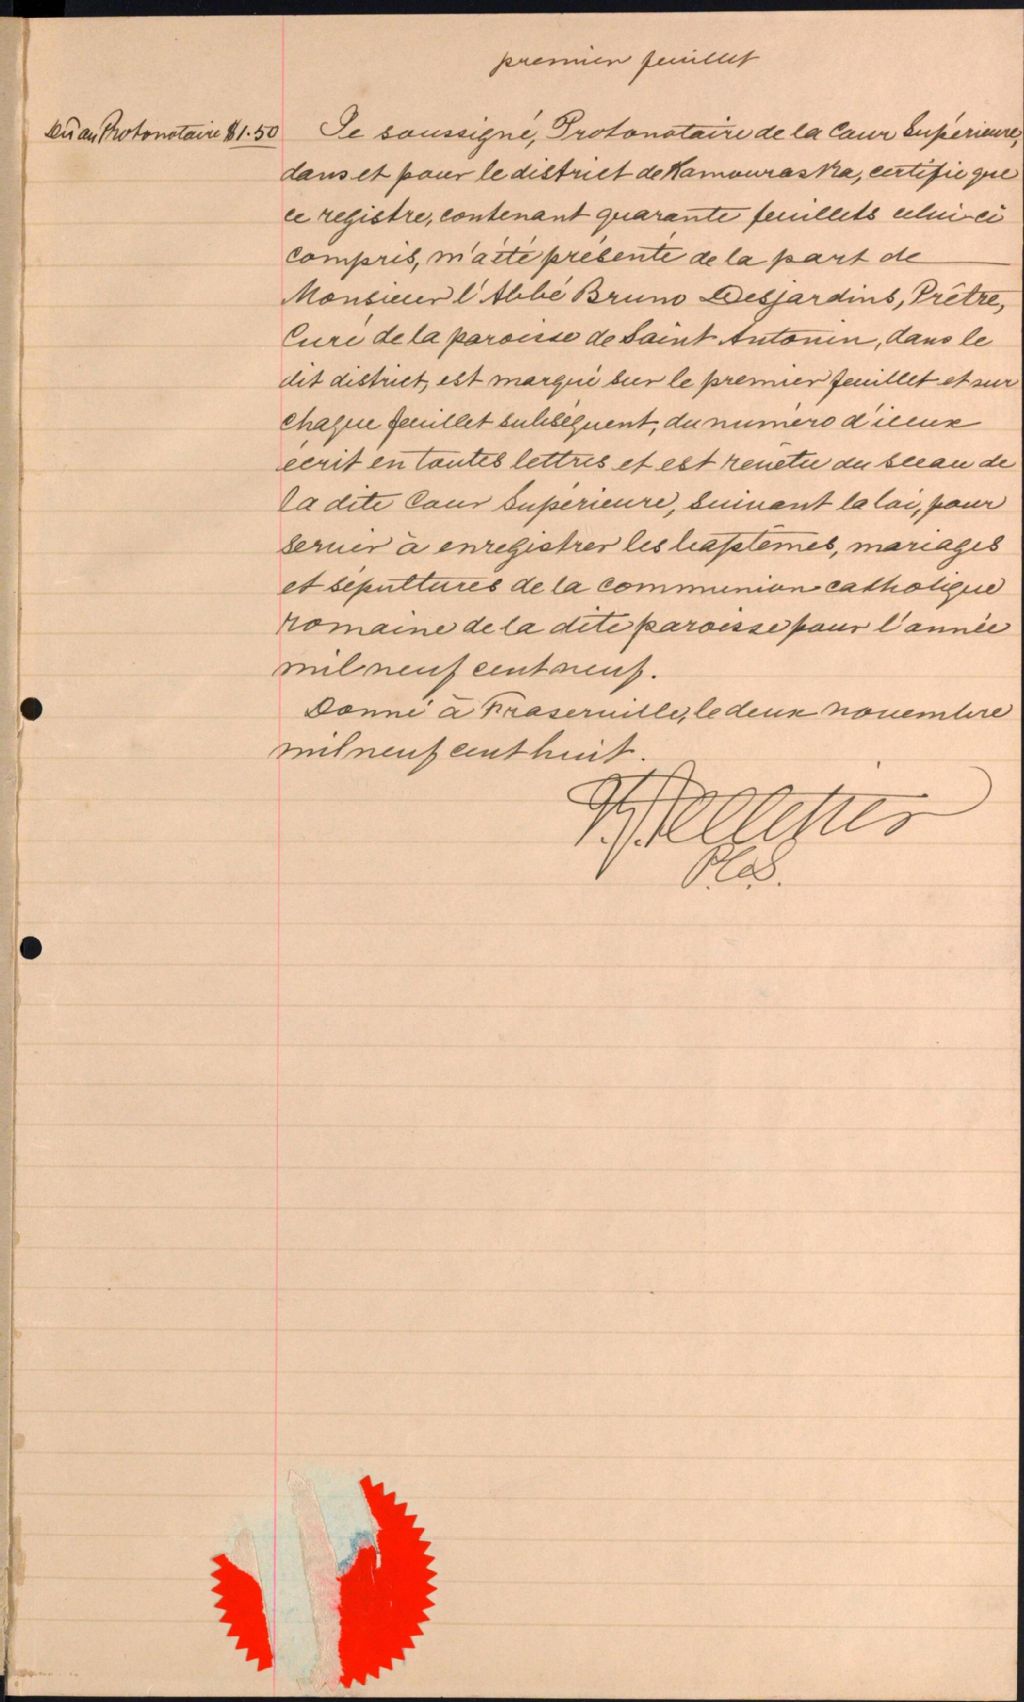 premier feuillet
Dû au Protonotaire $1.50
Je soussigné, Protonotaire de la Cour Supérieure,
dans et pour le district de Kamouraska, certifie que
ce registre, contenant quarante feuillets celui-ci
compris, m'a été présenté de la part de
Monsieur l'Abbé Bruno Desjardins, Prêtre,
Curé de la paroisse de Saint Antonin, dans le
dit district, est marqué sur le premier feuillet et sur
chaque feuillet subséquent, du numéro d'iceux
écrit en toutes lettres et est revêtu du sceau de
la dite Cour Supérieure, suivant la loi, pour
servir à enregistrer les baptêmes, mariages
et sépultures de la communion catholique
romaine de la dite paroisse pour l'année
mil neuf cent neuf.
Donné à Fraserville, le deux novembre
mil neuf cent huit.
Pelletier
P.C.S.